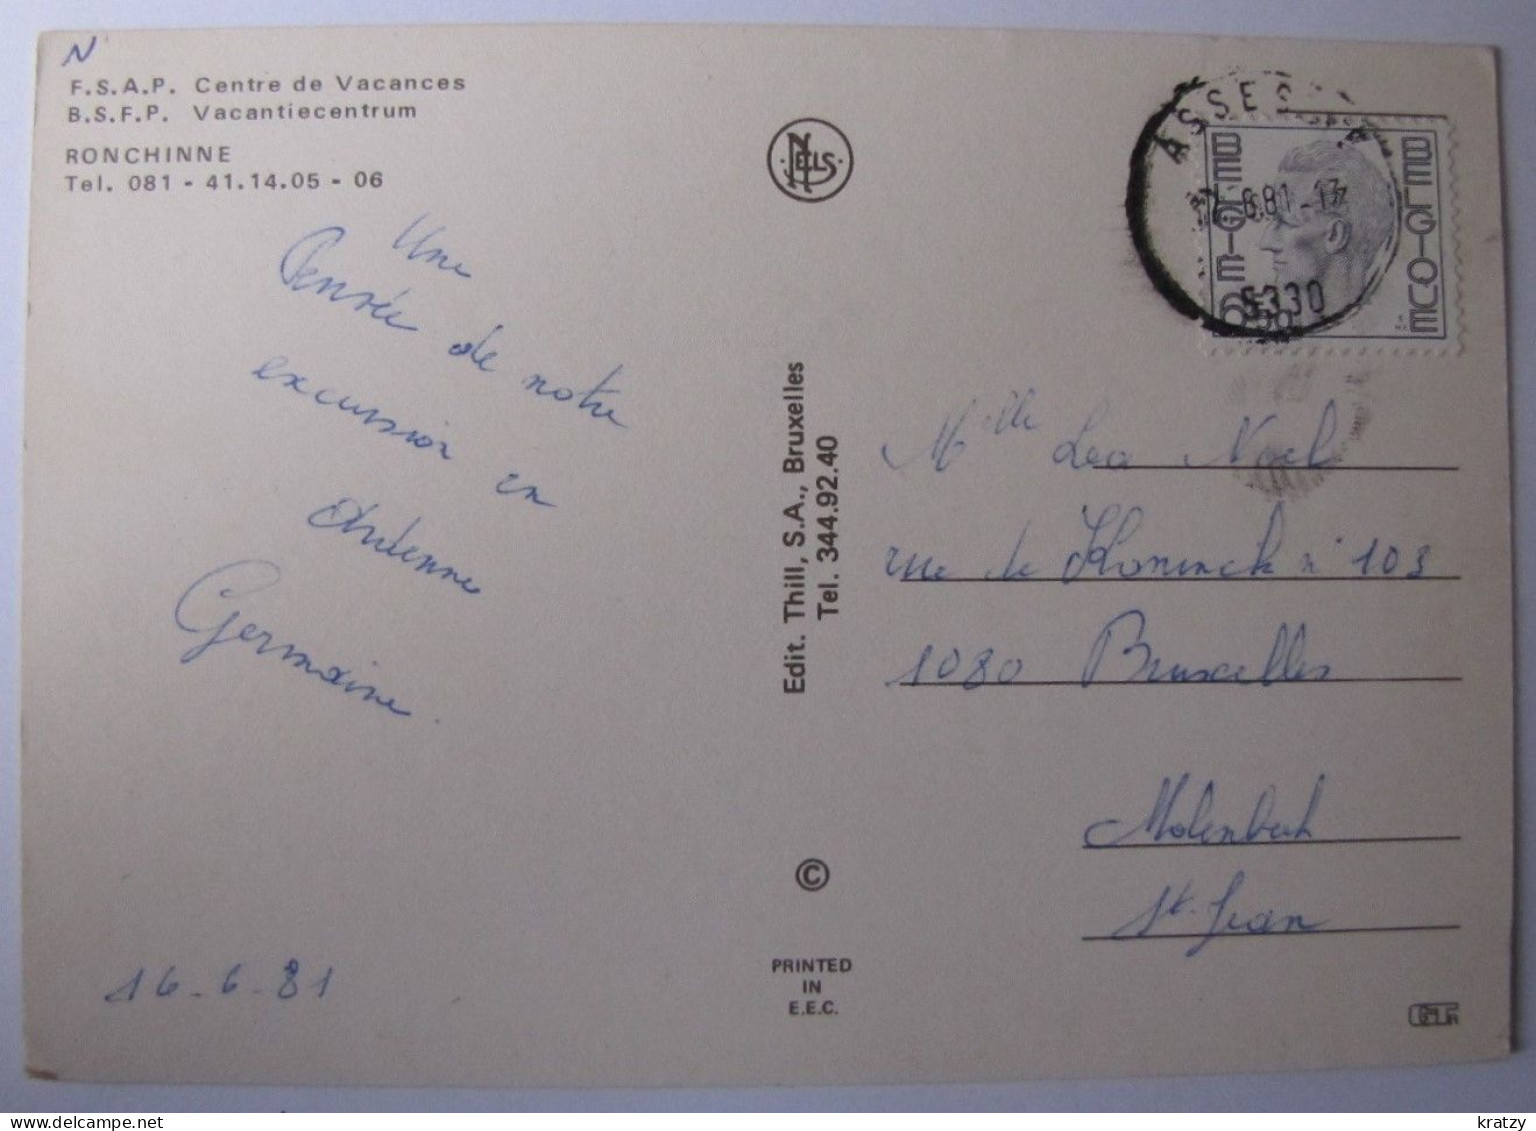 N
F.S.A.P. Centre de Vacances
B.S.F.P. Vacantiecentrum
RONCHINNE
Tel. 081 - 41.14.05 - 06
Une
Pensée de notre
excursion en
Ardenne
Germaine.
16-6-81
NELS
Edit. Thill, S.A., Bruxelles
Tel. 344.92.40
©
PRINTED
IN
E.E.C.
ASSES
6.81-17
5330
BELGIE
BELGIQUE
650
Melle Lea Noel
rue de Koninck n° 103
1080 Bruxelles
Molenbeek
St. Jean
kratzy